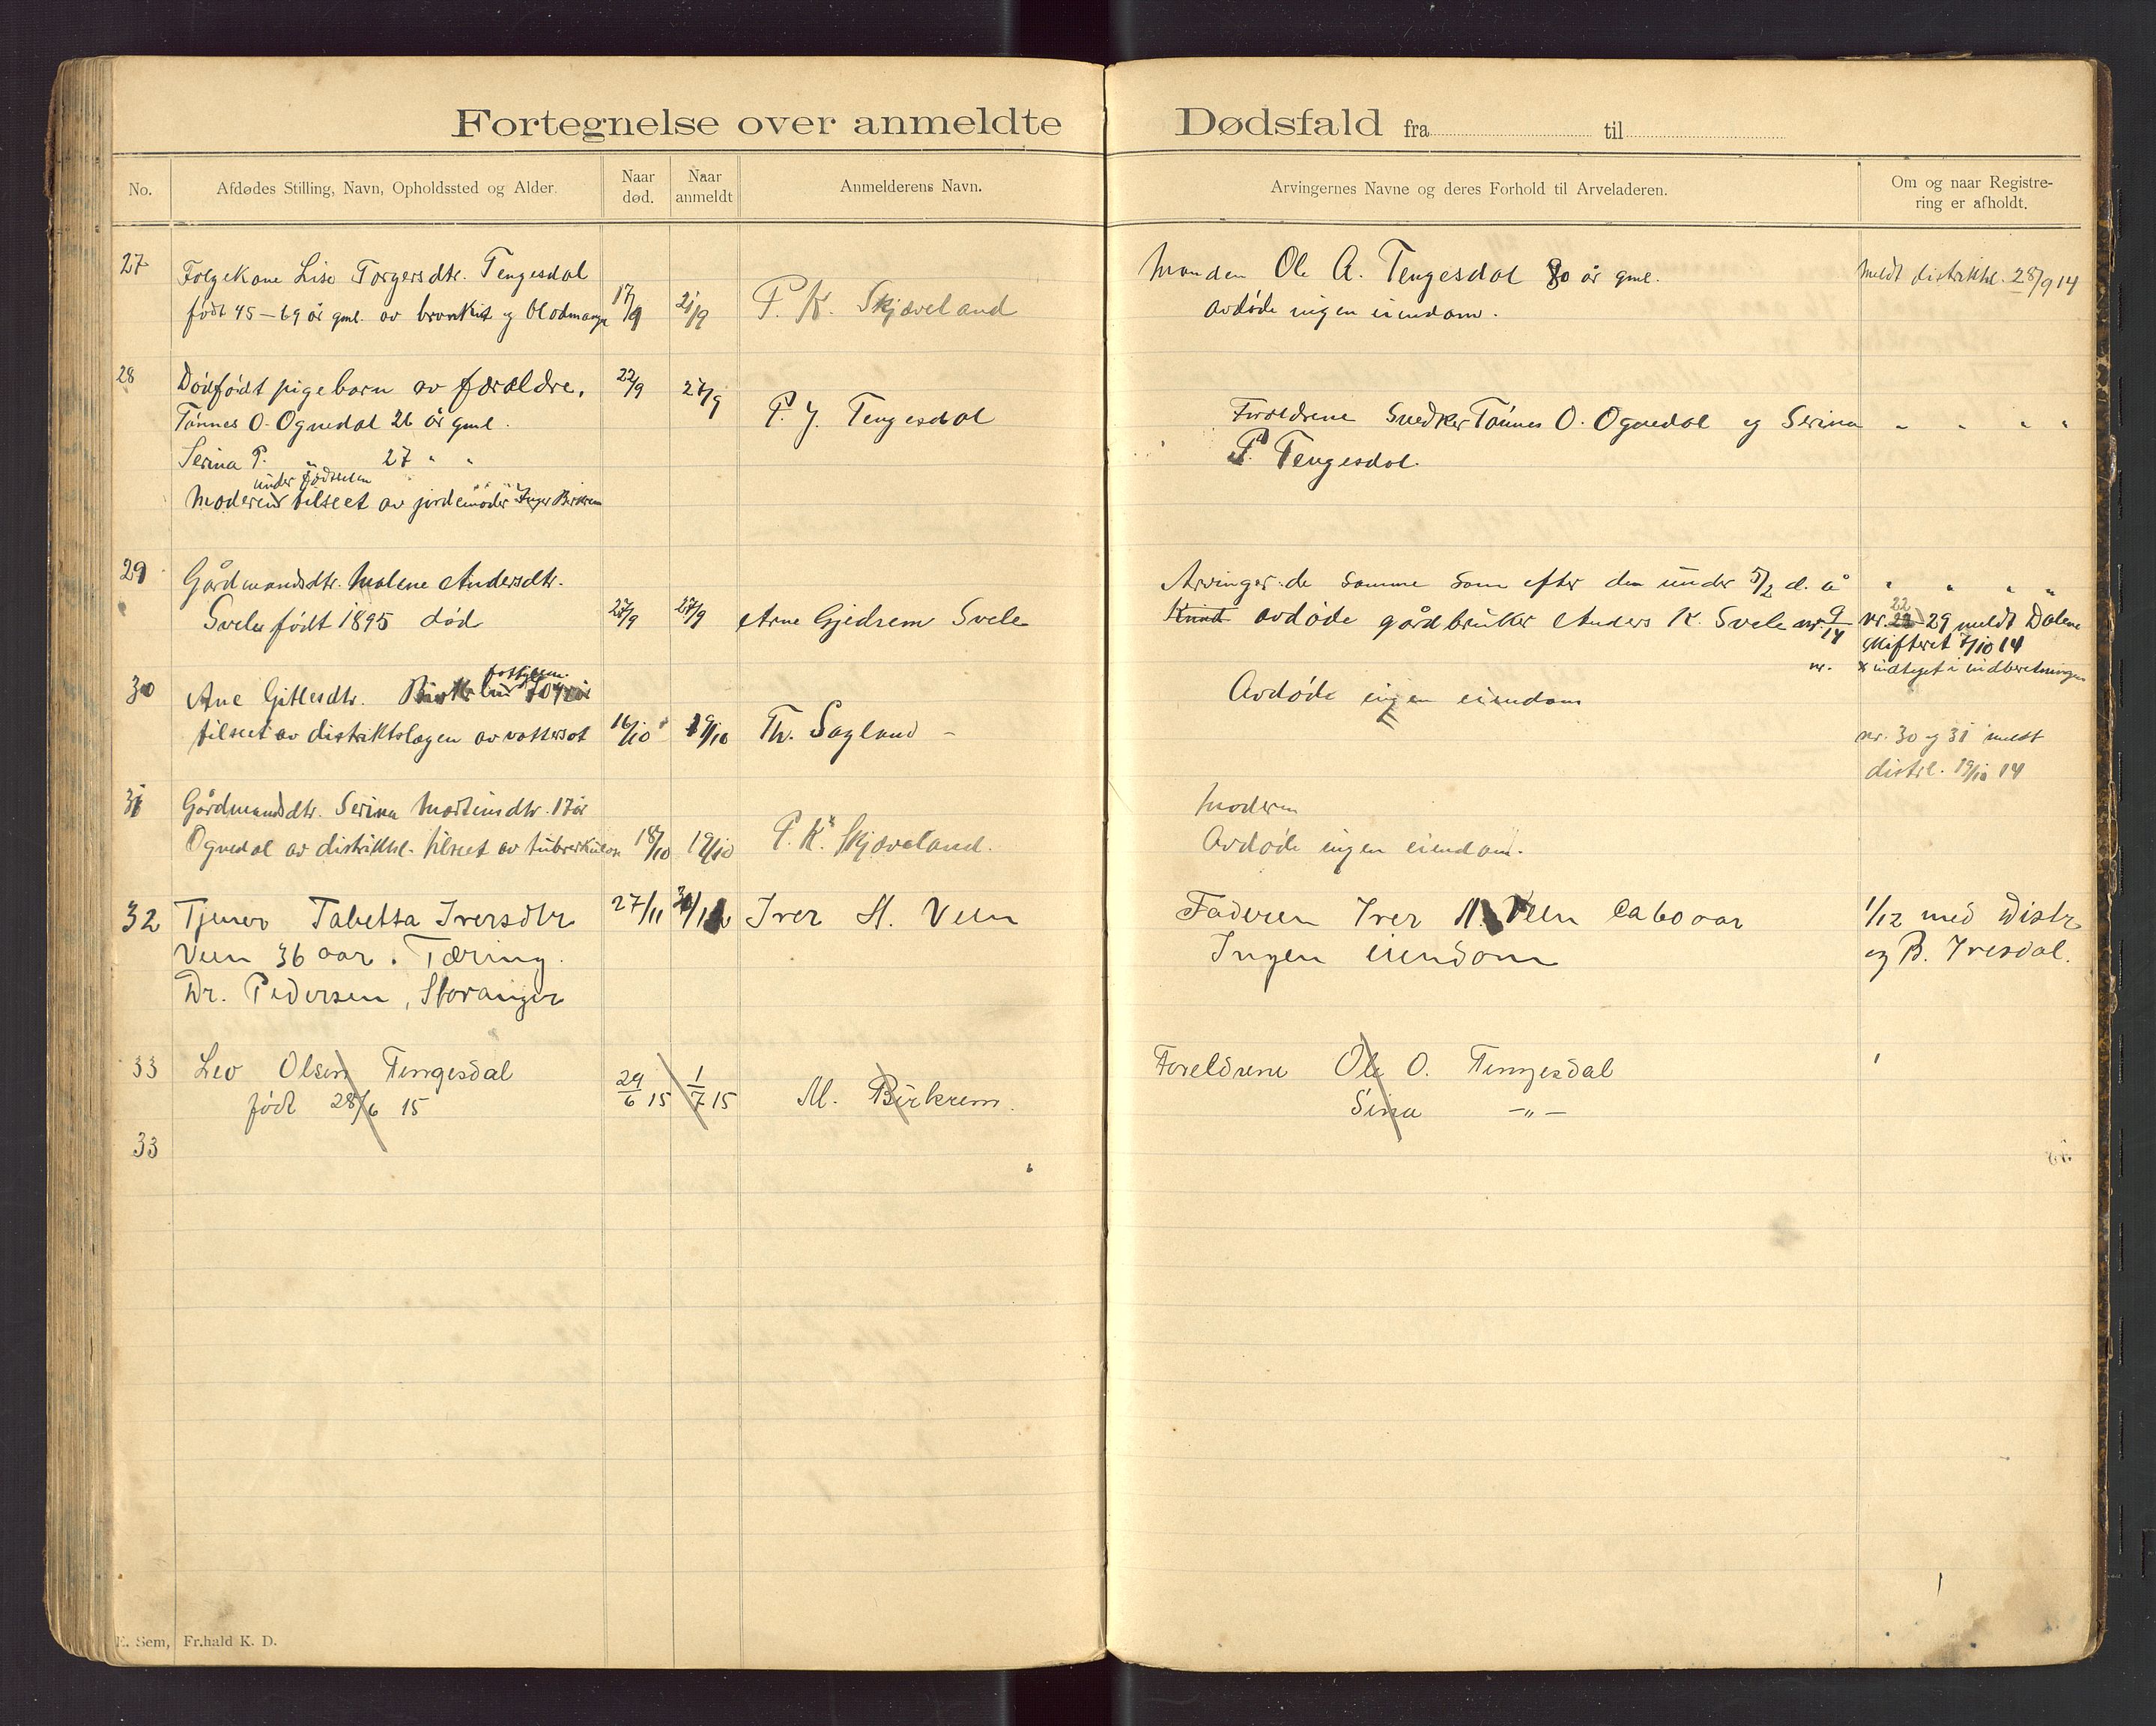 Fortegnelse over anmeldte Dødsfald fra til
No. Afdødes Stilling, Navn, Opholdssted og Alder. Naar død. Naar anmeldt Anmelderens Navn. Arvingernes Navne og deres Forhold til Arveladeren. Om og naar Registrering er afholdt.
27 Folgekone Lise Torgersdtr. Tengesdal
født 45 – 69 år gml. av bronkit og blodmangel 17/9 21/9 P. K. Skjæveland
Manden Ole A. Tengesdal 80 år gml. meldt distriktsl. 28/9 14
avdøde ingen eiendom.
28 Dødfødt pigebarn av forældre. 22/9 27/9 P. J. Tengesdal
Tønnes O. Ognedal 26 år gml.
Serina P. " 27 " "
under fødselen
Moderen tilseet av jordemoder Inger Birkrem
Foreldrene Snedker Tønnes O. Ognedal og Serina " " " "
P. Tengesdal.
29 Gårdmandsdtr. Malene Andersdtr.
Svele født 1895 død 27/9 27/9 Arne Gjedrem Svele
Arvinger: de samme som efter den under 5/2 d. å " " " "
Knud avdøde gårdbruker Anders K. Svele nr. 9/14 nr. 22 29 meldt Dalene
skifteret 7/10 14
nr. x indtaget i indberetningen
30 Ane Gitlesdtr. 70 år
tilseet av distriktslægen av vattersot 16/10 19/10 Th. Sagland –
Avdøde ingen eiendom
nr. 30 og 31 meldt
distrl. 19/10 14
31 Gårdmandsdtr. Serina Martinsdtr. 17 år
Ognedal av distriktsl. tilseet av tuberkulose 18/10 19/10 P. K. Skjæveland.
Moderen
Avdøde ingen eiendom.
32 Tjener Tabetta Iversdtr 27/11 Iver H. Veen
Veen 36 aar. Tæring.
Dr. Pedersen, Stavanger
Faderen Iver H. Veen ca 60 aar 1/12 med Distr
Ingen eiendom og B. Ivesdal.
33 Leo Olsen Tengesdal
født 28/6 15 29/6 15 1/7 15 M. Birkrem.
Foreldrene Ole O. Tengesdal
Sina –"–
33
E. Sem, Fr.hald K. D.